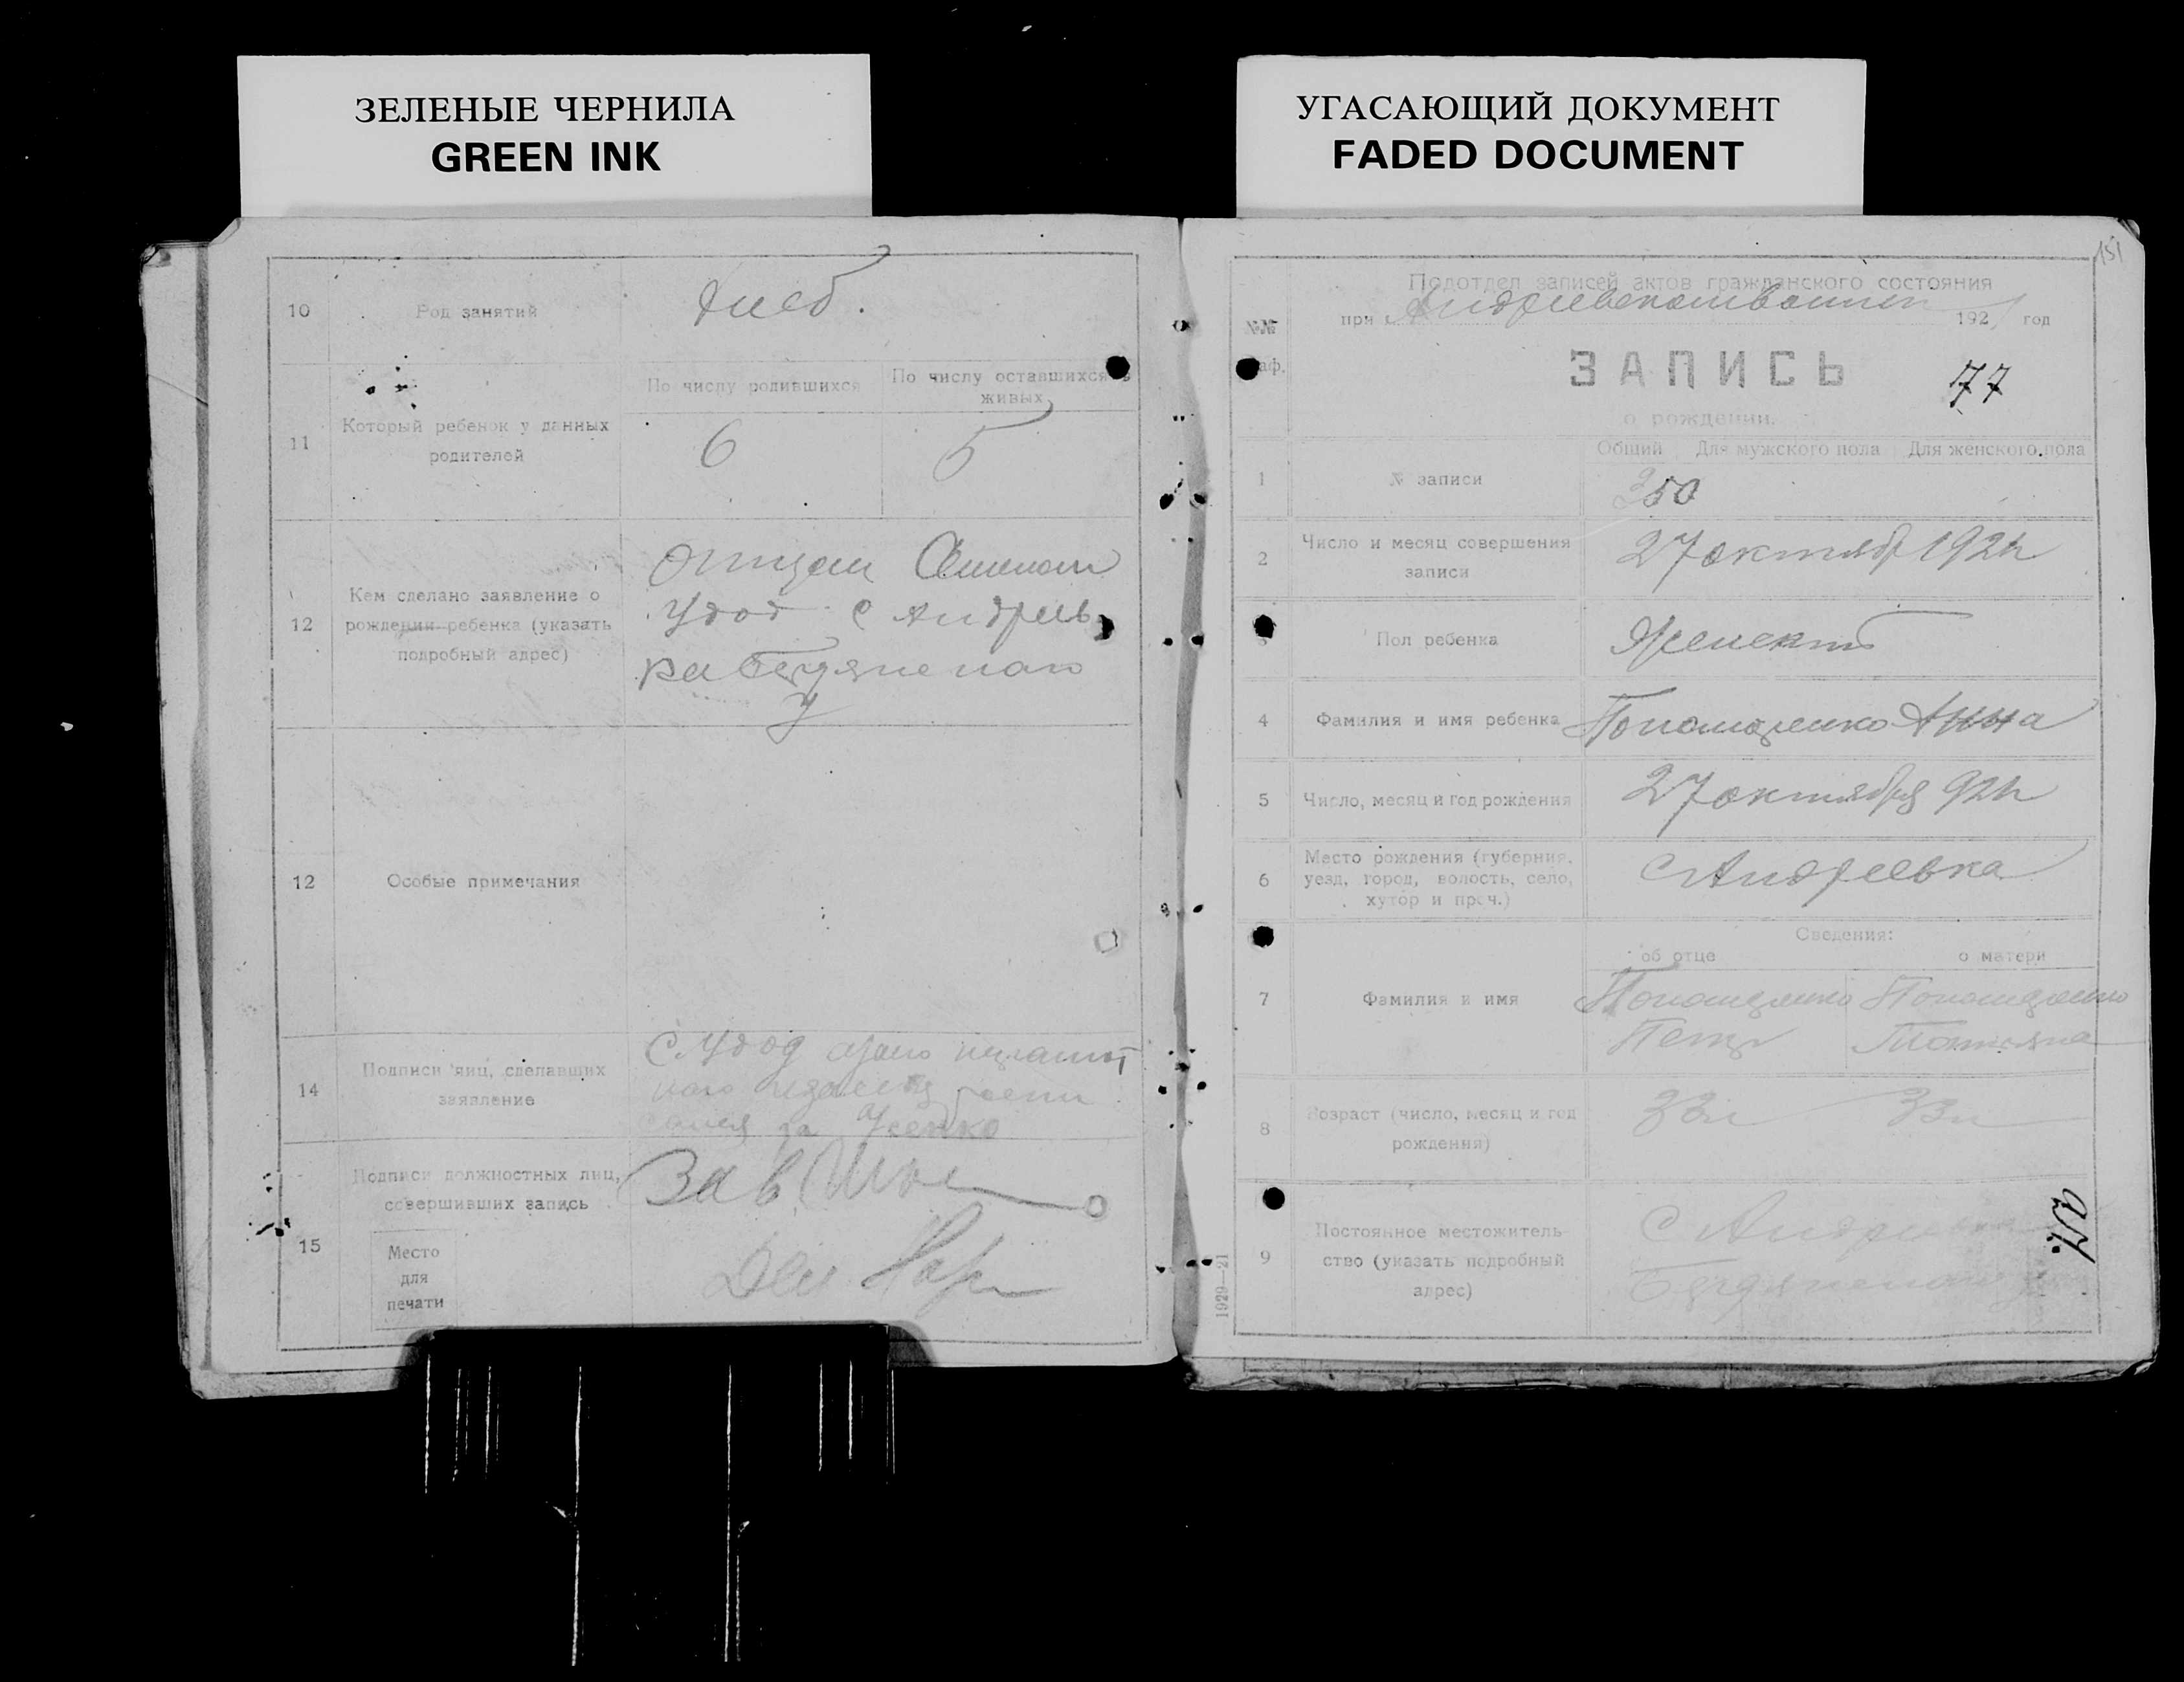 ЗЕЛЕНЫЕ ЧЕРНИЛА
GREEN INK
УГАСАЮЩИЙ ДОКУМЕНТ
FADED DOCUMENT
10 Род занятий хлеб.
11 Который ребенок у данных родителей
По числу родившихся
По числу оставшихся в живых
6 5
12 Кем сделано заявление о рождении ребенка (указать подробный адрес)
Отцом Семеном
Удод с Андреев
12 Особые примечания
14 Подписи лиц, сделавших заявление
С. Удод
за Усенко
15 Подписи должностных лиц, совершивших запись
Зав
Место
для
печати
151
Подотдел записей актов гражданского состояния
при
192 год
№№
граф.
ЗАПИСЬ
77
о рождении.
Общий Для мужского пола Для женского пола
1 № записи 350
2 Число и месяц совершения записи 27 октяб 192
3 Пол ребенка Женский
4 Фамилия и имя ребенка Пономаренко Анна
5 Число, месяц и год рождения 27 октября 92
6 Место рождения (губерния, уезд, город, волость, село, хутор и проч.) С Андреевка
Сведения:
об отце о матери
7 Фамилия и имя Пономаренко Пономаренко
Петр Татьяна
8 Возраст (число, месяц и год рождения) 33л 33л
9 Постоянное местожительство (указать подробный адрес)
С Андреевка
1929—21